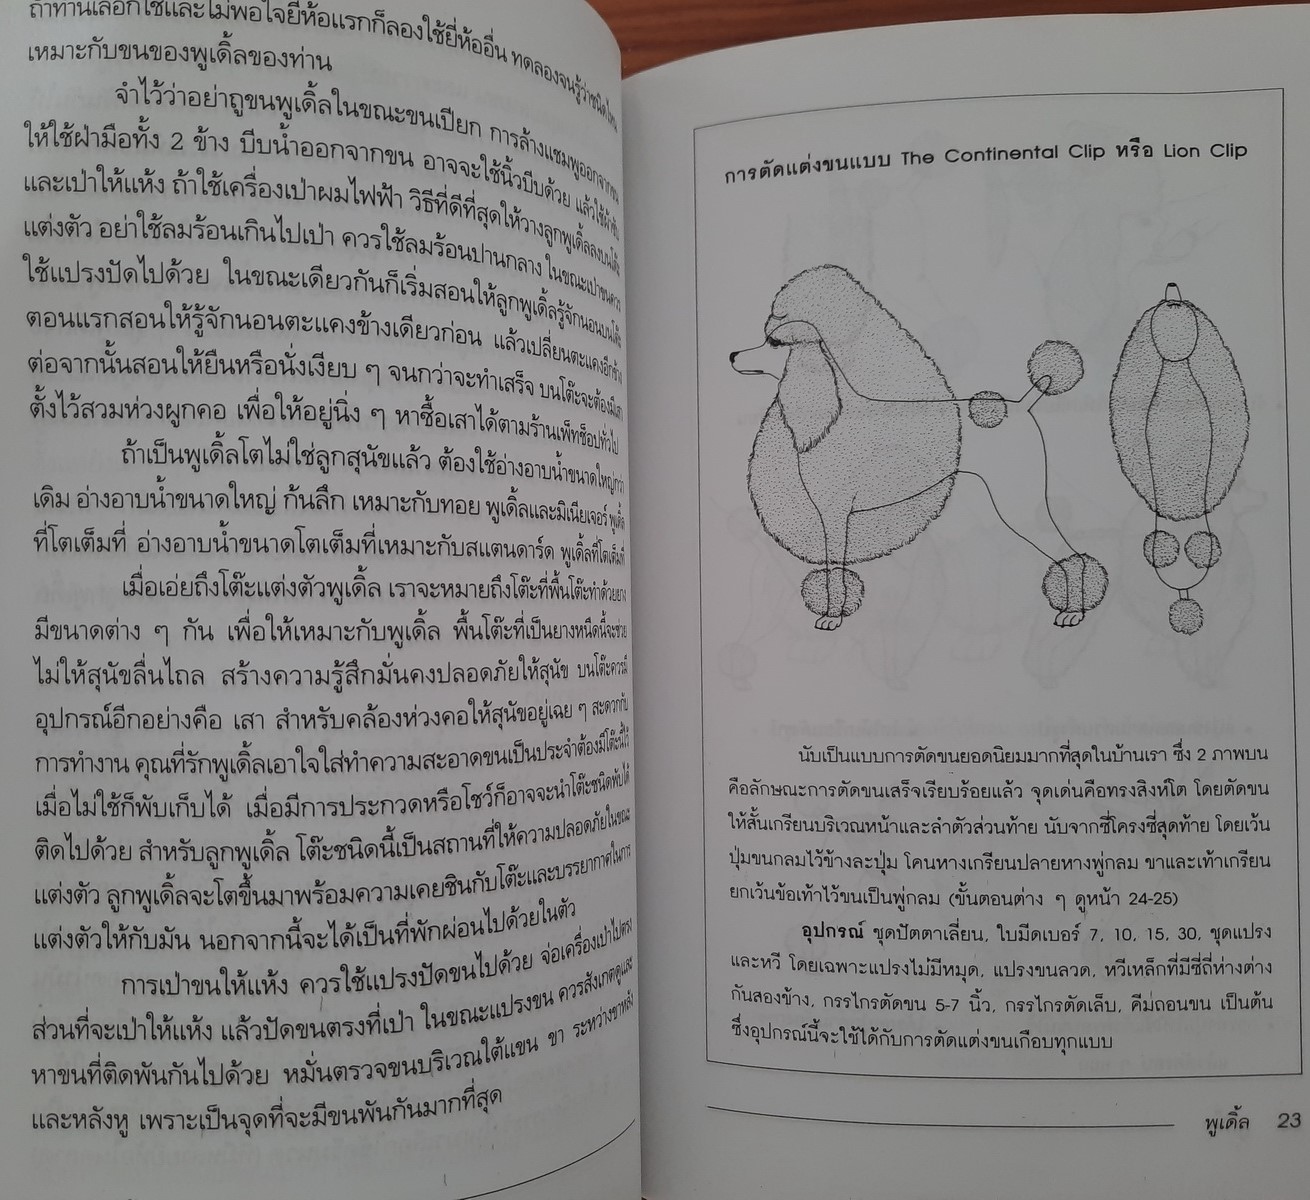 ถ้าท่านเลือกใช้และไม่พอใจยี่ห้อแรกก็ลองใช้ยี่ห้ออื่น ทดลองจนรู้ว่าชนิดไหน
เหมาะกับขนของพูเดิ้ลของท่าน
จำไว้ว่าอย่าถูขนพูเดิ้ลในขณะขนเปียก การล้างแชมพูออกจากขน
ให้ใช้ฝ่ามือทั้ง 2 ข้าง บีบน้ำออกจากขน อาจจะใช้นิ้วบีบด้วย แล้วใช้ผ้าซับ
และเป่าให้แห้ง ถ้าใช้เครื่องเป่าผมไฟฟ้า วิธีที่ดีที่สุดให้วางลูกพูเดิ้ลลงบนโต๊ะ
แต่งตัว อย่าใช้ลมร้อนเกินไปเป่า ควรใช้ลมร้อนปานกลาง ในขณะเป่าขนควร
ใช้แปรงปัดไปด้วย ในขณะเดียวกันก็เริ่มสอนให้ลูกพูเดิ้ลรู้จักนอนบนโต๊ะ
ตอนแรกสอนให้รู้จักนอนตะแคงข้างเดียวก่อน แล้วเปลี่ยนตะแคงอีกข้าง
ต่อจากนั้นสอนให้ยืนหรือนั่งเงียบ ๆ จนกว่าจะทำเสร็จ บนโต๊ะจะต้องมีเสา
ตั้งไว้สวมห่วงผูกคอ เพื่อให้อยู่นิ่ง ๆ หาซื้อเสาได้ตามร้านเพ็ทช็อปทั่วไป
ถ้าเป็นพูเดิ้ลโตไม่ใช่ลูกสุนัขแล้ว ต้องใช้อ่างอาบน้ำขนาดใหญ่กว่า
เดิม อ่างอาบน้ำขนาดใหญ่ ก้นลึก เหมาะกับทอย พูเดิ้ลและมิเนียเจอร์ พูเดิ้ล
ที่โตเต็มที่ อ่างอาบน้ำขนาดโตเต็มที่เหมาะกับสแตนดาร์ด พูเดิ้ลที่โตเต็มที่
เมื่อเอ่ยถึงโต๊ะแต่งตัวพูเดิ้ล เราจะหมายถึงโต๊ะที่พื้นโต๊ะทำด้วยยาง
มีขนาดต่าง ๆ กัน เพื่อให้เหมาะกับพูเดิ้ล พื้นโต๊ะที่เป็นยางหนืดนี้จะช่วย
ไม่ให้สุนัขลื่นไถล สร้างความรู้สึกมั่นคงปลอดภัยให้สุนัข บนโต๊ะควรมี
อุปกรณ์อีกอย่างคือ เสา สำหรับคล้องห่วงคอให้สุนัขอยู่เฉย ๆ สะดวกกับ
การทำงาน คุณที่รักพูเดิ้ลเอาใจใส่ทำความสะอาดขนเป็นประจำต้องมีโต๊ะนี้ไว้
เมื่อไม่ใช้ก็พับเก็บได้ เมื่อมีการประกวดหรือโชว์ก็อาจจะนำโต๊ะชนิดพับได้
ติดไปด้วย สำหรับลูกพูเดิ้ล โต๊ะชนิดนี้เป็นสถานที่ให้ความปลอดภัยในขณะ
แต่งตัว ลูกพูเดิ้ลจะโตขึ้นมาพร้อมความเคยชินกับโต๊ะและบรรยากาศในการ
แต่งตัวให้กับมัน นอกจากนี้จะได้เป็นที่พักผ่อนไปด้วยในตัว
การเป่าขนให้แห้ง ควรใช้แปรงปัดขนไปด้วย จ่อเครื่องเป่าไปตรง
ส่วนที่จะเป่าให้แห้ง แล้วปัดขนตรงที่เป่า ในขณะแปรงขน ควรสังเกตดูและ
หาขนที่ติดพันกันไปด้วย หมั่นตรวจขนบริเวณใต้แขน ขา ระหว่างขาหลัง
และหลังหู เพราะเป็นจุดที่จะมีขนพันกันมากที่สุด
การตัดแต่งขนแบบ The Continental Clip หรือ Lion Clip
นับเป็นแบบการตัดขนยอดนิยมมากที่สุดในบ้านเรา ซึ่ง 2 ภาพบน
คือลักษณะการตัดขนเสร็จเรียบร้อยแล้ว จุดเด่นคือทรงสิงห์โต โดยตัดขน
ให้สั้นเกรียนบริเวณหน้าและลำตัวส่วนท้าย นับจากซี่โครงซี่สุดท้าย โดยเว้น
ปุ่มขนกลมไว้ข้างละปุ่ม โคนหางเกรียนปลายหางพู่กลม ขาและเท้าเกรียน
ยกเว้นข้อเท้าไว้ขนเป็นพู่กลม (ขั้นตอนต่าง ๆ ดูหน้า 24-25)
อุปกรณ์ ชุดปัตตาเลี่ยน, ใบมีดเบอร์ 7, 10, 15, 30, ชุดแปรง
และหวี โดยเฉพาะแปรงไม่มีหมุด, แปรงขนลวด, หวีเหล็กที่มีซี่ถี่ห่างต่าง
กันสองข้าง, กรรไกรตัดขน 5-7 นิ้ว, กรรไกรตัดเล็บ, คีมถอนขน เป็นต้น
ซึ่งอุปกรณ์นี้จะใช้ได้กับการตัดแต่งขนเกือบทุกแบบ
พูเดิ้ล 23